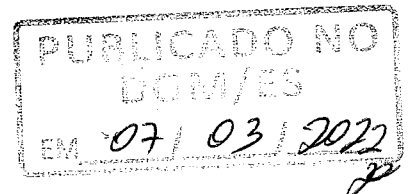 PUBLICADO NO
DOM/ES
EM 07/03/2022